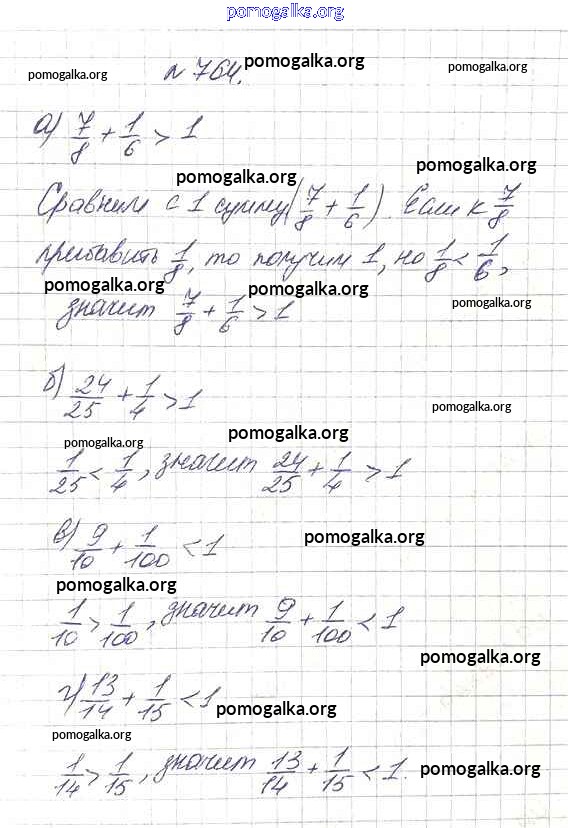 pomogalka.org
pomogalka.org № 764. pomogalka.org pomogalka.org
а) 7/8 + 1/6 > 1
pomogalka.org pomogalka.org
Сравним с 1 сумму (7/8 + 1/6). Если к 7/8
прибавить 1/8, то получим 1, но 1/8 < 1/6,
pomogalka.org pomogalka.org pomogalka.org
значит 7/8 + 1/6 > 1
б) 24/25 + 1/4 > 1
pomogalka.org
pomogalka.org pomogalka.org
1/25 < 1/4, значит 24/25 + 1/4 > 1
в) 9/10 + 1/100 < 1
pomogalka.org
pomogalka.org
1/10 > 1/100, значит 9/10 + 1/100 < 1
pomogalka.org
г) 13/14 + 1/15 < 1
pomogalka.org
pomogalka.org
1/14 > 1/15, значит 13/14 + 1/15 < 1.
pomogalka.org